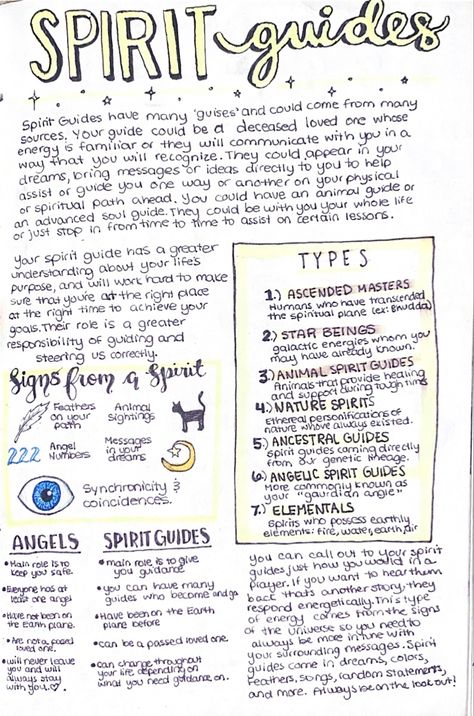 SPIRIT guides
Spirit Guides have many 'guises' and could come from many
sources. Your guide could be a deceased loved one whose
energy is familiar or they will communicate with you in a
way that you will recognize. They could appear in your
dreams, bring messages or ideas directly to you to help
assist or guide you one way or another on your physical
or spiritual path ahead. You could have an animal guide or
an advanced soul guide. They could be with you your whole life
or just stop in from time to time to assist on certain lessons.
Your spirit guide has a greater
understanding about your life's
purpose, and will work hard to make
sure that you're at the right place
at the right time to achieve your
goals. Their role is a greater
responsibility of guiding and
steering us correctly.
Signs from a Spirit
Feathers
on your
path
Animal
sightings
222
Angel
Numbers
Messages
in your
dreams
Synchronicity &
coincidences.
TYPES
1.) ASCENDED MASTERS
Humans who have transcended
the spiritual plane (ex: Buddda)
2.) STAR BEINGS
galactic energies whom you
may have already known.
3.) ANIMAL SPIRIT GUIDES
Animals that provide healing
and support during tough times
4.) NATURE SPIRITS
Ethereal personifications of
nature whove always existed.
5.) ANCESTRAL GUIDES
spirit guides coming directly
from our genetic lineage.
6.) ANGELIC SPIRIT GUIDES
More commonly known as
your "gaurdian angle"
7.) ELEMENTALS
Spirits who possess earthly
elements: fire, water, earth, air
ANGELS
• Main role is to
keep you safe.
• Everyone has at
least one angel
• Have not been on
the Earth plane.
• Are not a passed
loved one.
• will never leave
you and will
always stay
with you..♡.
SPIRIT GUIDES
• main role is to give
you guidance
• you can have many
guides who become and go
• Have been on the Earth
plane before
• can be a passed loved one.
• can change throughout
your life depending on
what you need guidance on.
you can call out to your spirit
guides just how you would in a
prayer. If you want to hear them
back thats another story, they
respond energetically. This type
of energy comes from the signs
of the universe so you need to
always be more in tune with
your surrounding messages. Spirit
guides come in dreams, colors,
feathers, songs, random statements,
and more. Always be on the look out!